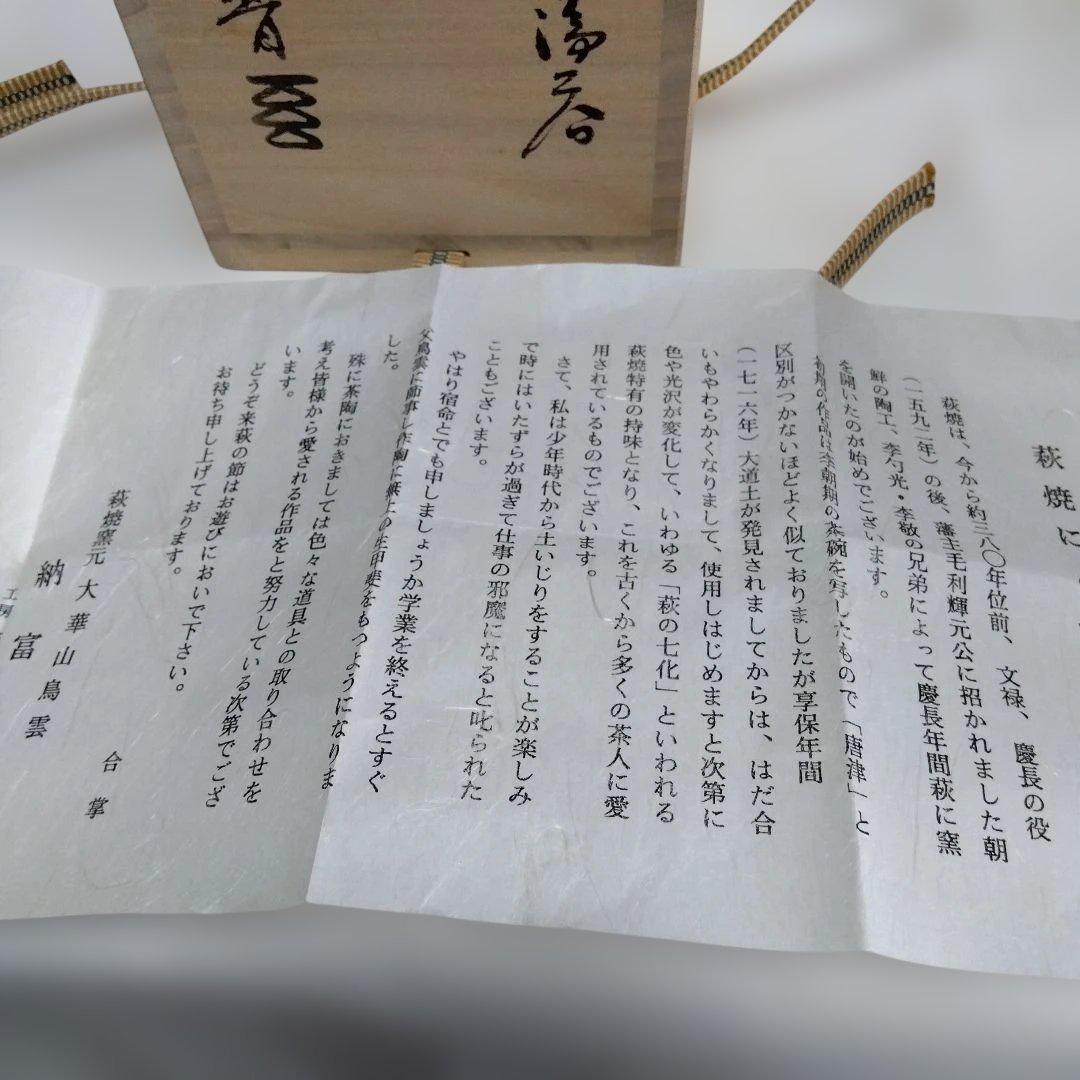 萩焼に
萩焼は、今から約三八〇年位前、文禄、慶長の役
(一五九二年)の後、藩主毛利輝元公に招かれました朝
鮮の陶工、李勺光・李敬の兄弟によって慶長年間萩に窯
を開いたのが始めでございます。
初期の作品は李朝期の茶碗を写したもので「唐津」と
区別がつかないほどよく似ておりましたが享保年間
(一七一六年)大道土が発見されましてからは、はだ合
いもやわらかくなりまして、使用しはじめますと次第に
色や光沢が変化して、いわゆる「萩の七化」といわれる
萩焼特有の持味となり、これを古くから多くの茶人に愛
用されているものでございます。
さて、私は少年時代から土いじりをすることが楽しみ
で時にはいたずらが過ぎて仕事の邪魔になると叱られた
こともございます。
やはり宿命とでも申しましょうか学業を終えるとすぐ
父鳥雲に師事し作陶に無上の生甲斐をもつようになりま
した。
殊に茶陶におきましては色々な道具との取り合わせを
考え皆様から愛される作品をと努力している次第でござ
います。
どうぞ来萩の節はお遊びにおいで下さい。
お待ち申し上げております。
合掌
萩焼窯元 大華山鳥雲
納富
工房